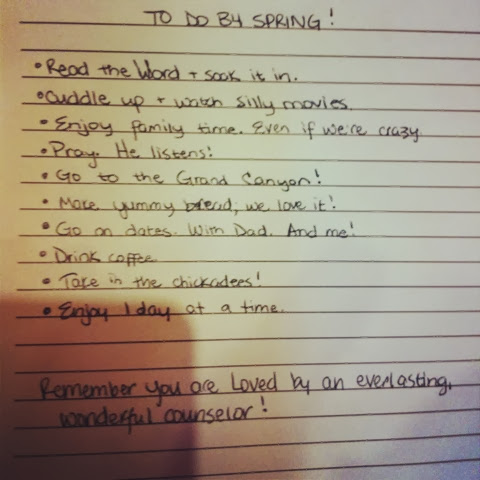 TO DO BY SPRING!
• Read the Word + soak it in.
• Cuddle up + watch silly movies.
• Enjoy family time. Even if we're crazy.
• Pray. He listens!
• Go to the Grand Canyon!
• Make yummy bread, we love it!
• Go on dates. With Dad. And me!
• Drink coffee
• Take in the chickadees!
• Enjoy 1 day at a time.
Remember you are Loved by an everlasting,
wonderful counselor!